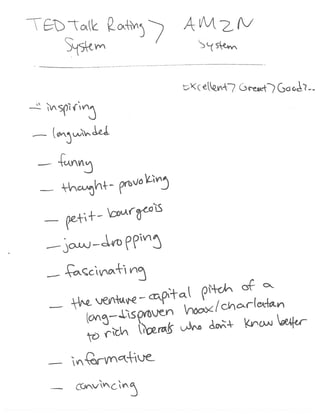 TED Talk Rating > AMZN
System System
Excellent > Great > Good > ..
- inspiring
- longwinded
- funny
- thought-provoking
- petit-bourgeois
- jaw-dropping
- fascinating
- the venture-capital pitch of a
long-disproven hoax/charlatan
to rich liberals who don't know better
- informative
- convincing